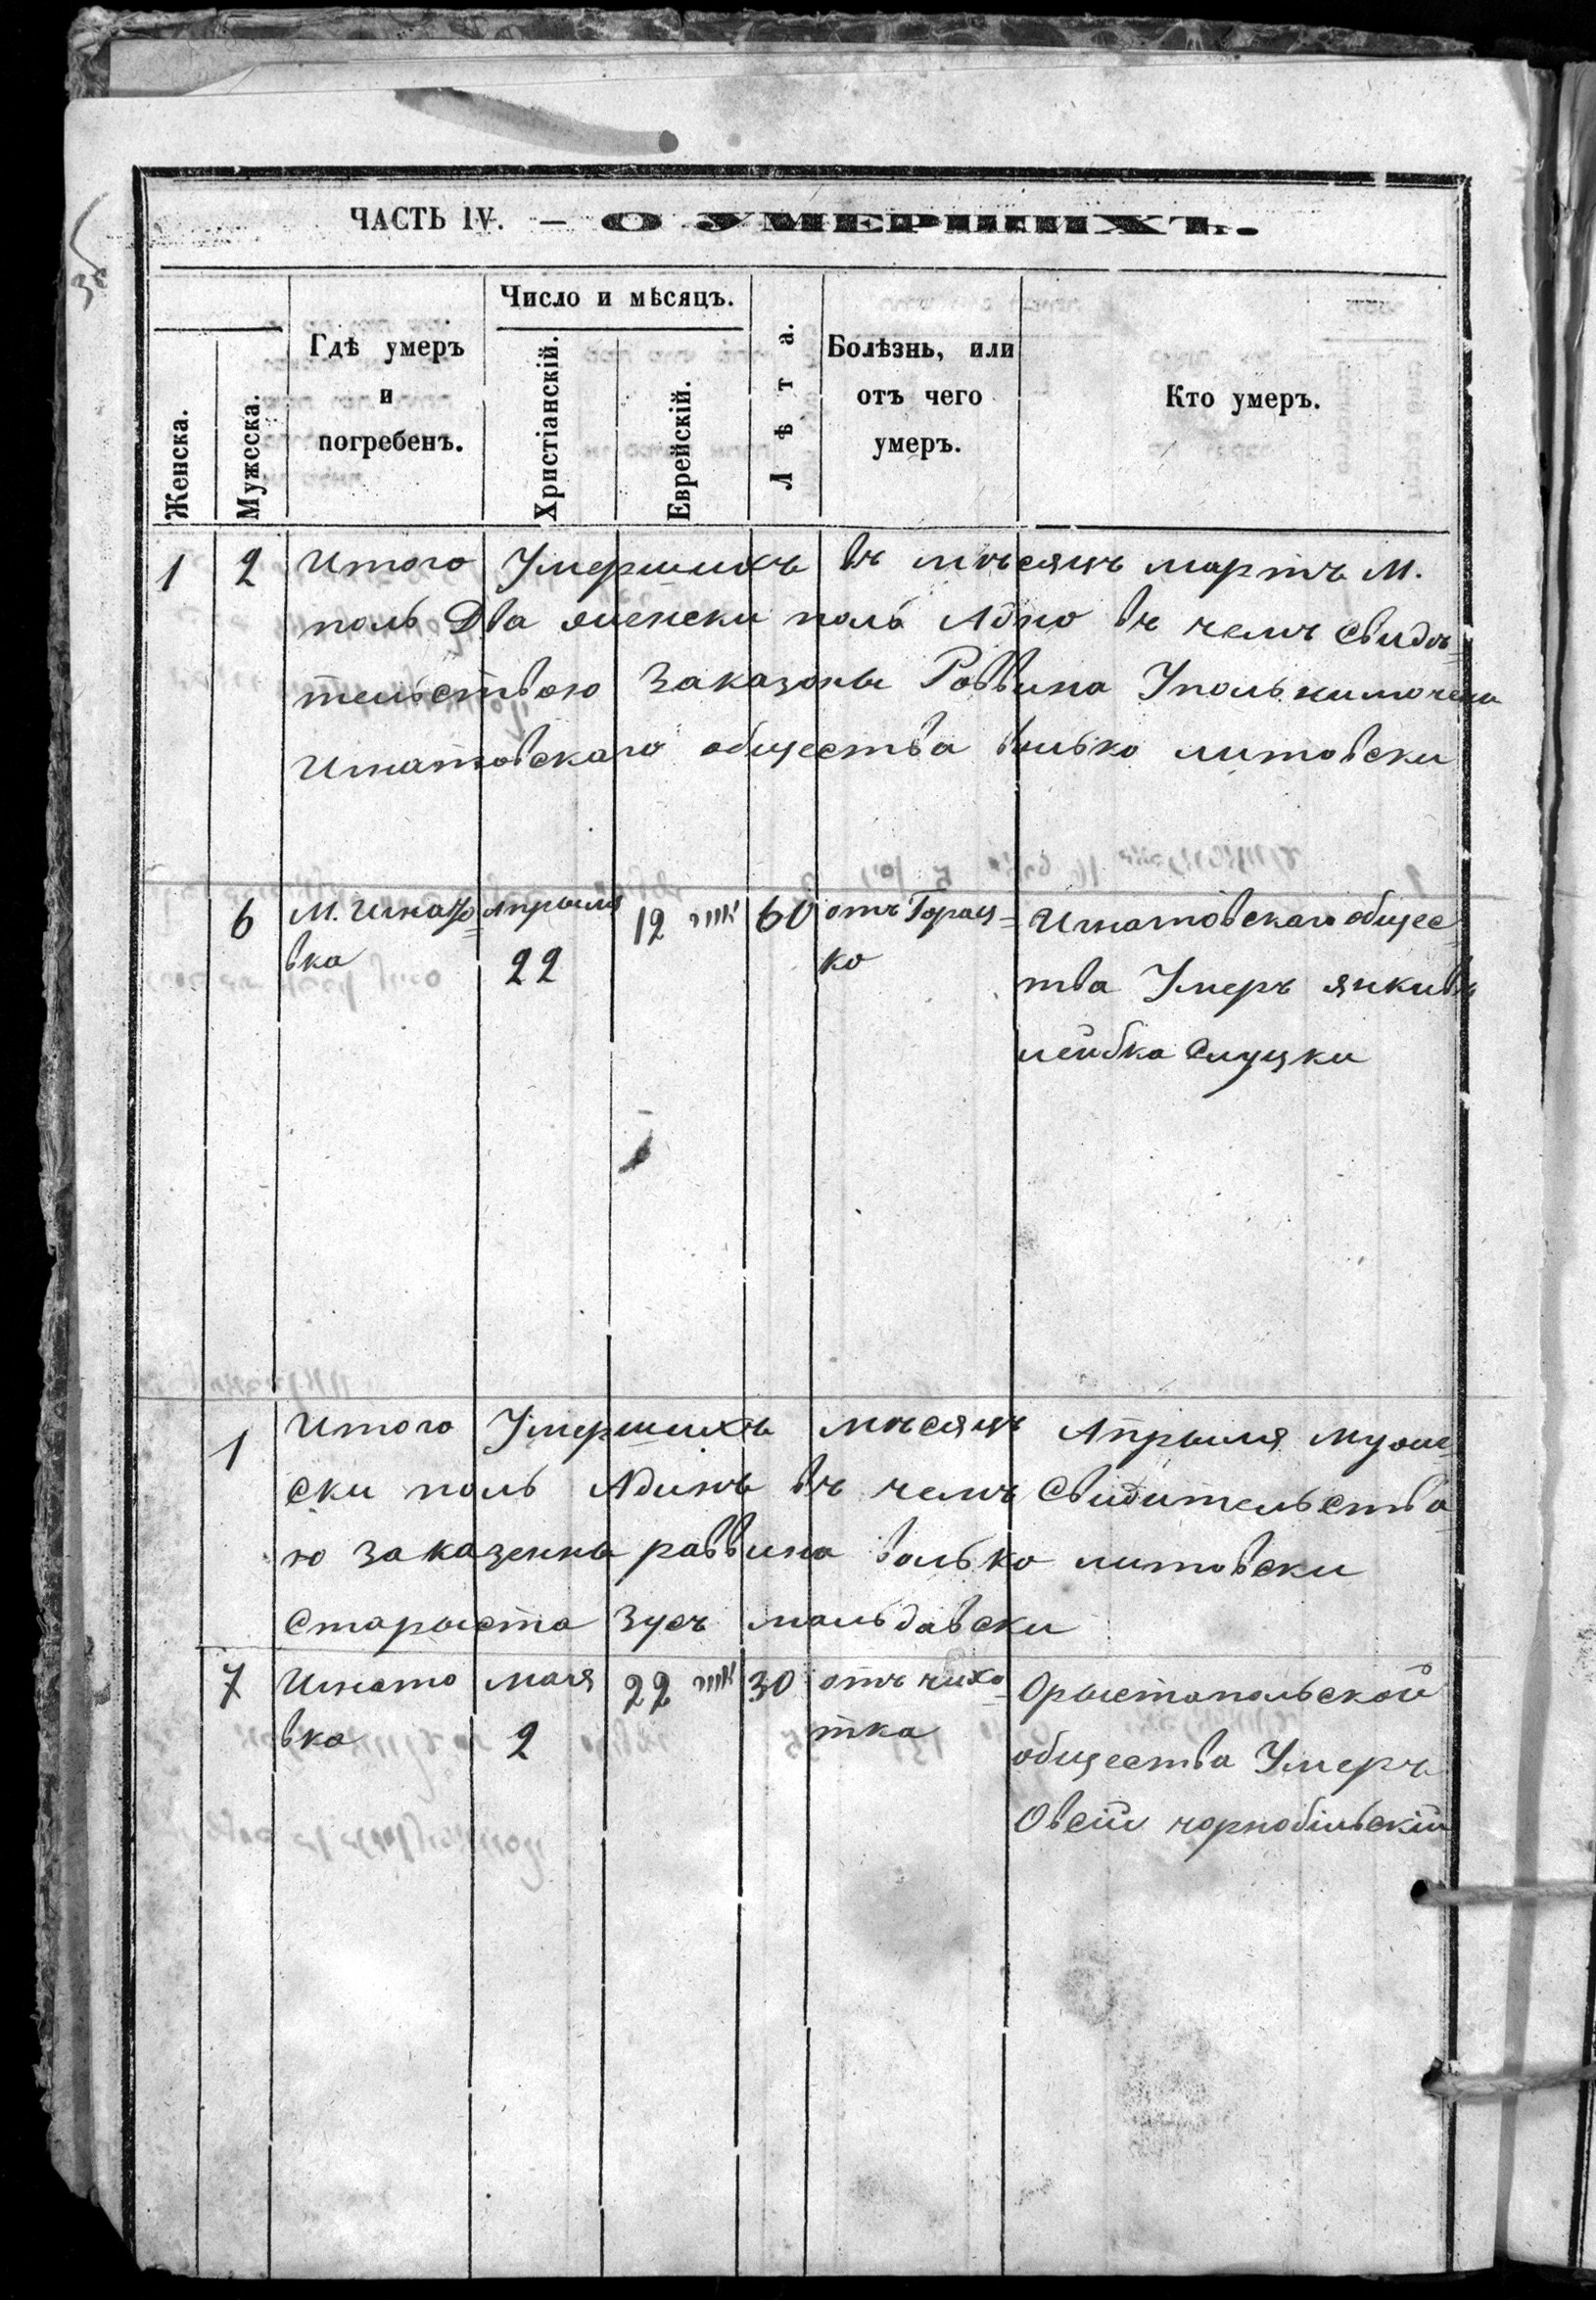 ЧАСТЬ IV. — О УМЕРШИХЪ.
Женска.
Мужсска.
Гдѣ умеръ
и
погребенъ.
Число и мѣсяцъ.
Христіанскій.
Еврейскій.
Лѣта.
Болѣзнь, или
отъ чего
умеръ.
Кто умеръ.
1 2 Итого Умершихъ въ мѣсяцъ мартъ М.
полъ Два женски полъ Адно въ чемъ Свидѣ=
тельствою Заказоны Раввина
Игнатовскаго общества Волько литовски
6 М. Игнато= Апрыля 12 60 отъ Горяч= Игнатовскаго общес=
вка 22 ко тва Умеръ янкивъ
лейбка Слуцки
1 Итого Умершихъ мѣсяцъ Апрыля муже=
ски полъ Адинъ въ чемъ Свидительства=
ю заказенны раввина волько литовски
Старыста Зусъ мальдавски
7 Игнато Мая 22 30 отъ чихо= Орыстопольской
вка 2 тка общества Умеръ
Овсій чорнобільскій